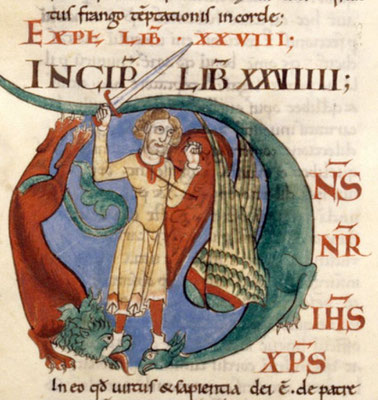 rtus frango tēptationis in corde;
EXPL̄ LIB̄ · XXVIII;
INCIP̄ LIB̄ XXVIIII;
DN̄S
N̄R
IH̄S
XP̄S
In eo qđ virtus & sapientia dei ē. de patre